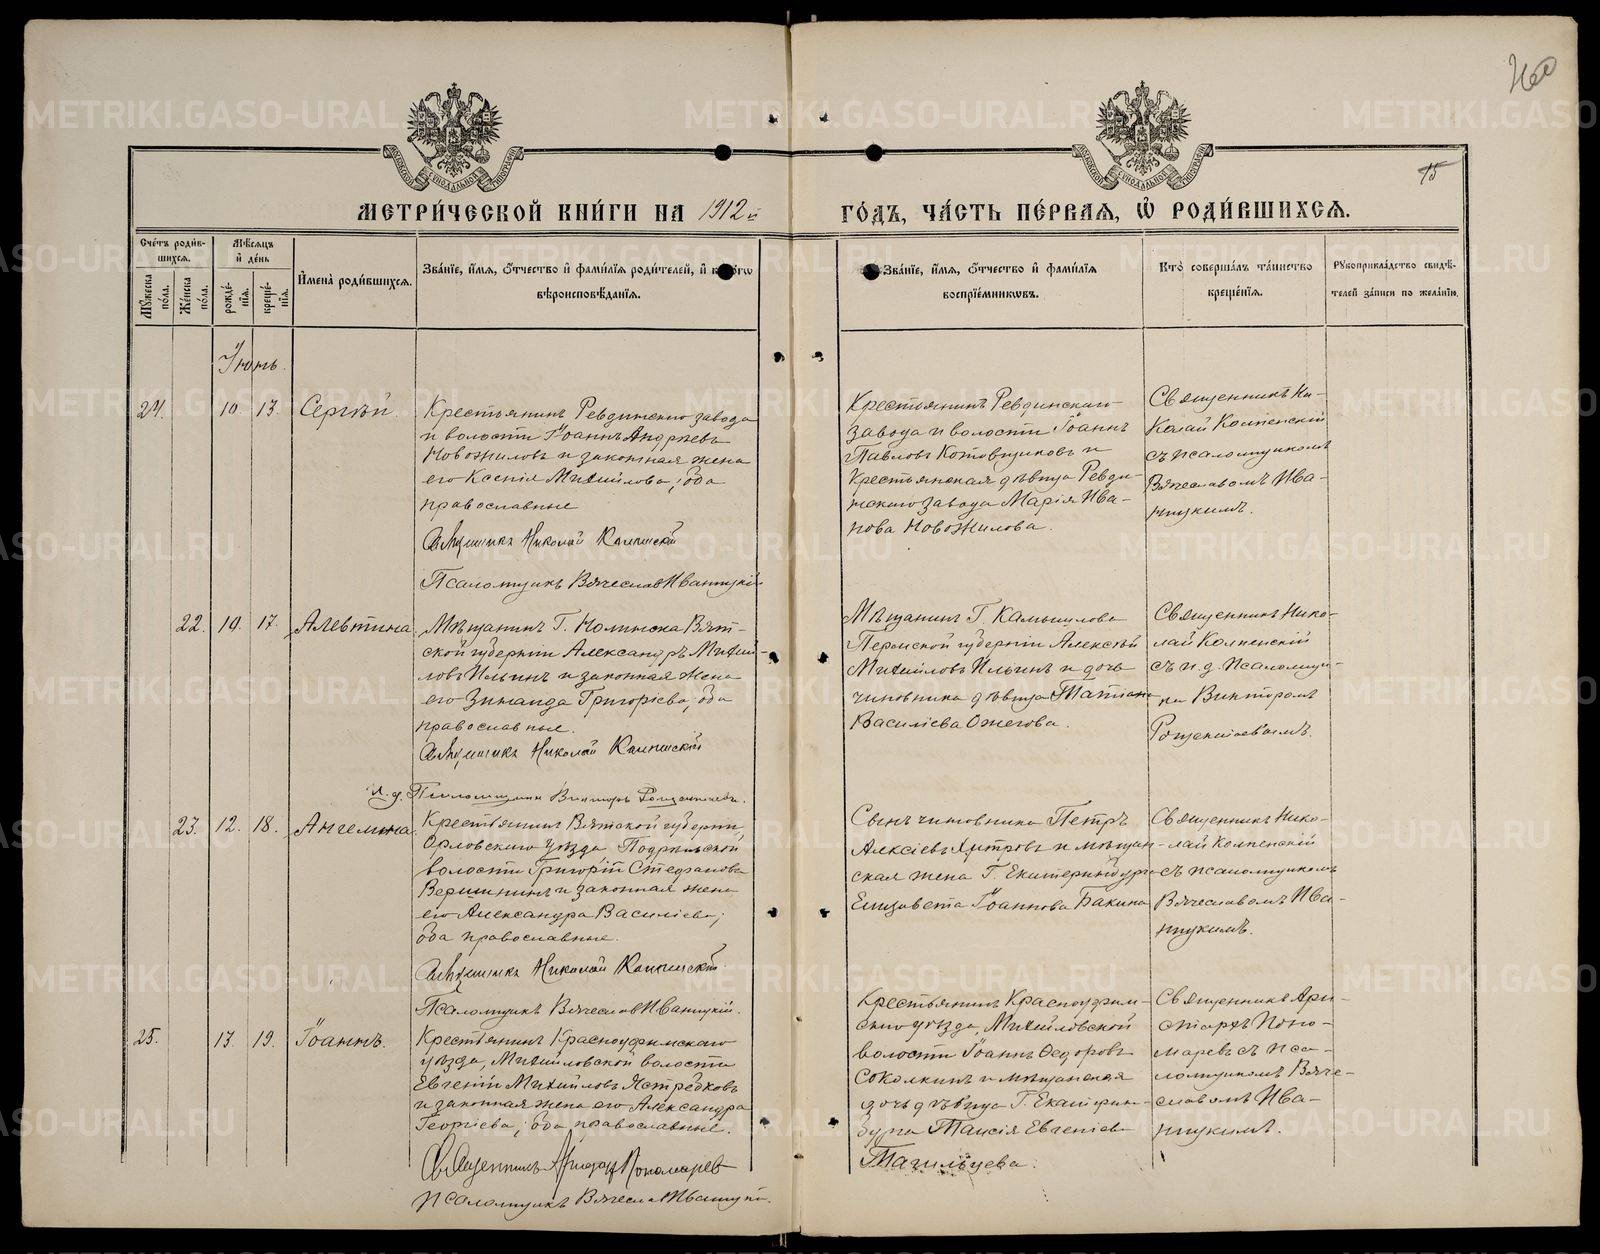 15
МОСКОВСКОЙ СѴНОДАЛЬНОЙ ТИПОГРАФІИ
МОСКОВСКОЙ СѴНОДАЛЬНОЙ ТИПОГРАФІИ
МЕТРИ́ЧЕСКОЙ КНИ́ГИ НА 1912 й
ГО́ДЪ, ЧА́СТЬ ПЕ́РВАЯ, Ѡ РОДИ́ВШИХСЯ.
Сче́тъ роди́вшихся.
Му́жеска по́ла.
Же́нска по́ла.
Мѣ́сяцъ и де́нь
рожде́нїя.
креще́нїя.
И҆мена̀ роди́вшихся.
Зва́нїе, и҆́мя, ѻ҆́тчество и҆ фами́лїя роди́телей, и҆ како́гѡ
вѣроисповѣ́данїя.
Зва́нїе, и҆́мя, ѻ҆́тчество и҆ фами́лїя
воспрїе́мникѡвъ.
Кто̀ соверша́лъ та́инство
креще́нїя.
Рꙋкоприкла́дство свидѣ́телей за́писи по жела́нїю.
Іюнь.
24. 10. 13. Сергѣй.
Крестьянинъ Ревдинскаго завода
и волости Іоаннъ Андреевъ
Новожиловъ и законная жена
его Ксенія Михайлова; оба
православные
Священникъ Николай Колпенскій
Псаломщикъ Вячеславъ Иваницкій
Крестьянинъ Ревдинскаго
завода и волости Іоаннъ
Павловъ Котовщиковъ и
Крестьянская дѣвица Ревди-
нскаго завода Марія Ива-
нова Новожилова.
Священникъ Ни-
колай Колпенскій
съ псаломщикомъ
Вячеславомъ Ива-
ницкимъ.
22. 10. 17. Алевтина
Мѣщанинъ Г. Нолинска Вят-
ской губерніи Александръ Михай-
ловъ Ильинъ и законная жена
его Зинаида Григоріева; оба
православные.
Священникъ Николай Колпенскій
И. д. Псаломщика Викторъ
Мѣщанинъ Г. Камышлова
Пермской губерніи Алексѣй
Михайловъ Ильинъ и дочь
чиновника дѣвица Татіана
Василіева Ожегова.
Священникъ Нико-
лай Колпенскій
съ и. д. Псаломщи-
ка Викторомъ
23. 12. 18. Ангелина.
Крестьянинъ Вятской губерніи,
Орловскаго уѣзда Подрельской
волости Григорій Стефановъ
Вершининъ и законная жена
его Александра Василіева;
оба православные.
Священникъ Николай Колпенскій
Псаломщикъ Вячеславъ Иваницкій.
Сынъ чиновника Петръ
Алексіевъ Хитровъ и мѣщан-
ская жена Г. Екатеринбурга
Елизавета Іоаннова Бакина
Священникъ Нико-
лай Колпенскій
съ псаломщикомъ
Вячеславомъ Ива-
ницкимъ.
25. 17. 19. Іоаннъ.
Крестьянинъ Красноуфимскаго
уѣзда, Михайловской волости
Евгеній Михайловъ Ястребковъ
и законная жена его Александра
Георгіева; оба православные.
Священникъ Аристархъ Пономаревъ
Псаломщикъ Вячеславъ Иваницкій.
Крестьянинъ Красноуфим-
скаго уѣзда, Михайловской
волости Іоаннъ Ѳедоровъ
Соколкинъ и мѣщанская
дочь дѣвица Г. Екатерин-
бурга Таисія Евгеніева
Тагильцева.
Священникъ Ари-
стархъ Поно-
маревъ съ пса-
ломщикомъ Вяче-
славомъ Ива-
ницкимъ.